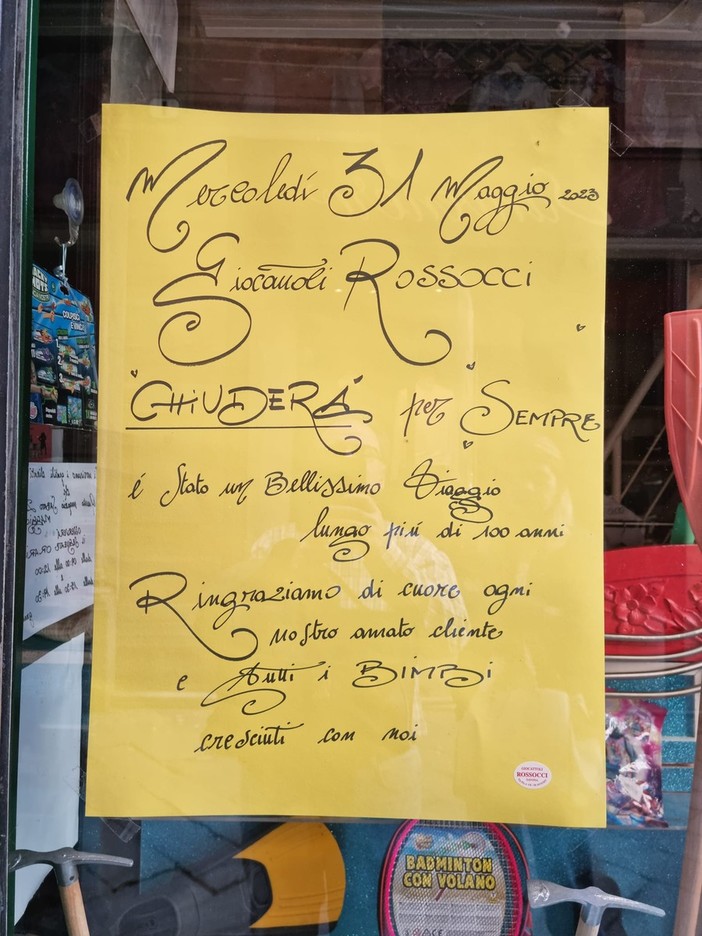 Mercoledí 31 Maggio 2023
Giocattoli Rossocci
"CHIUDERÁ" per SEMPRE
é stato un Bellissimo Viaggio
lungo piú di 100 anni
Ringraziamo di cuore ogni
nostro amato cliente
e tutti i BIMBI
cresciuti con noi
GIOCATTOLI
ROSSOCCI
BADMINTON
CON VOLANO